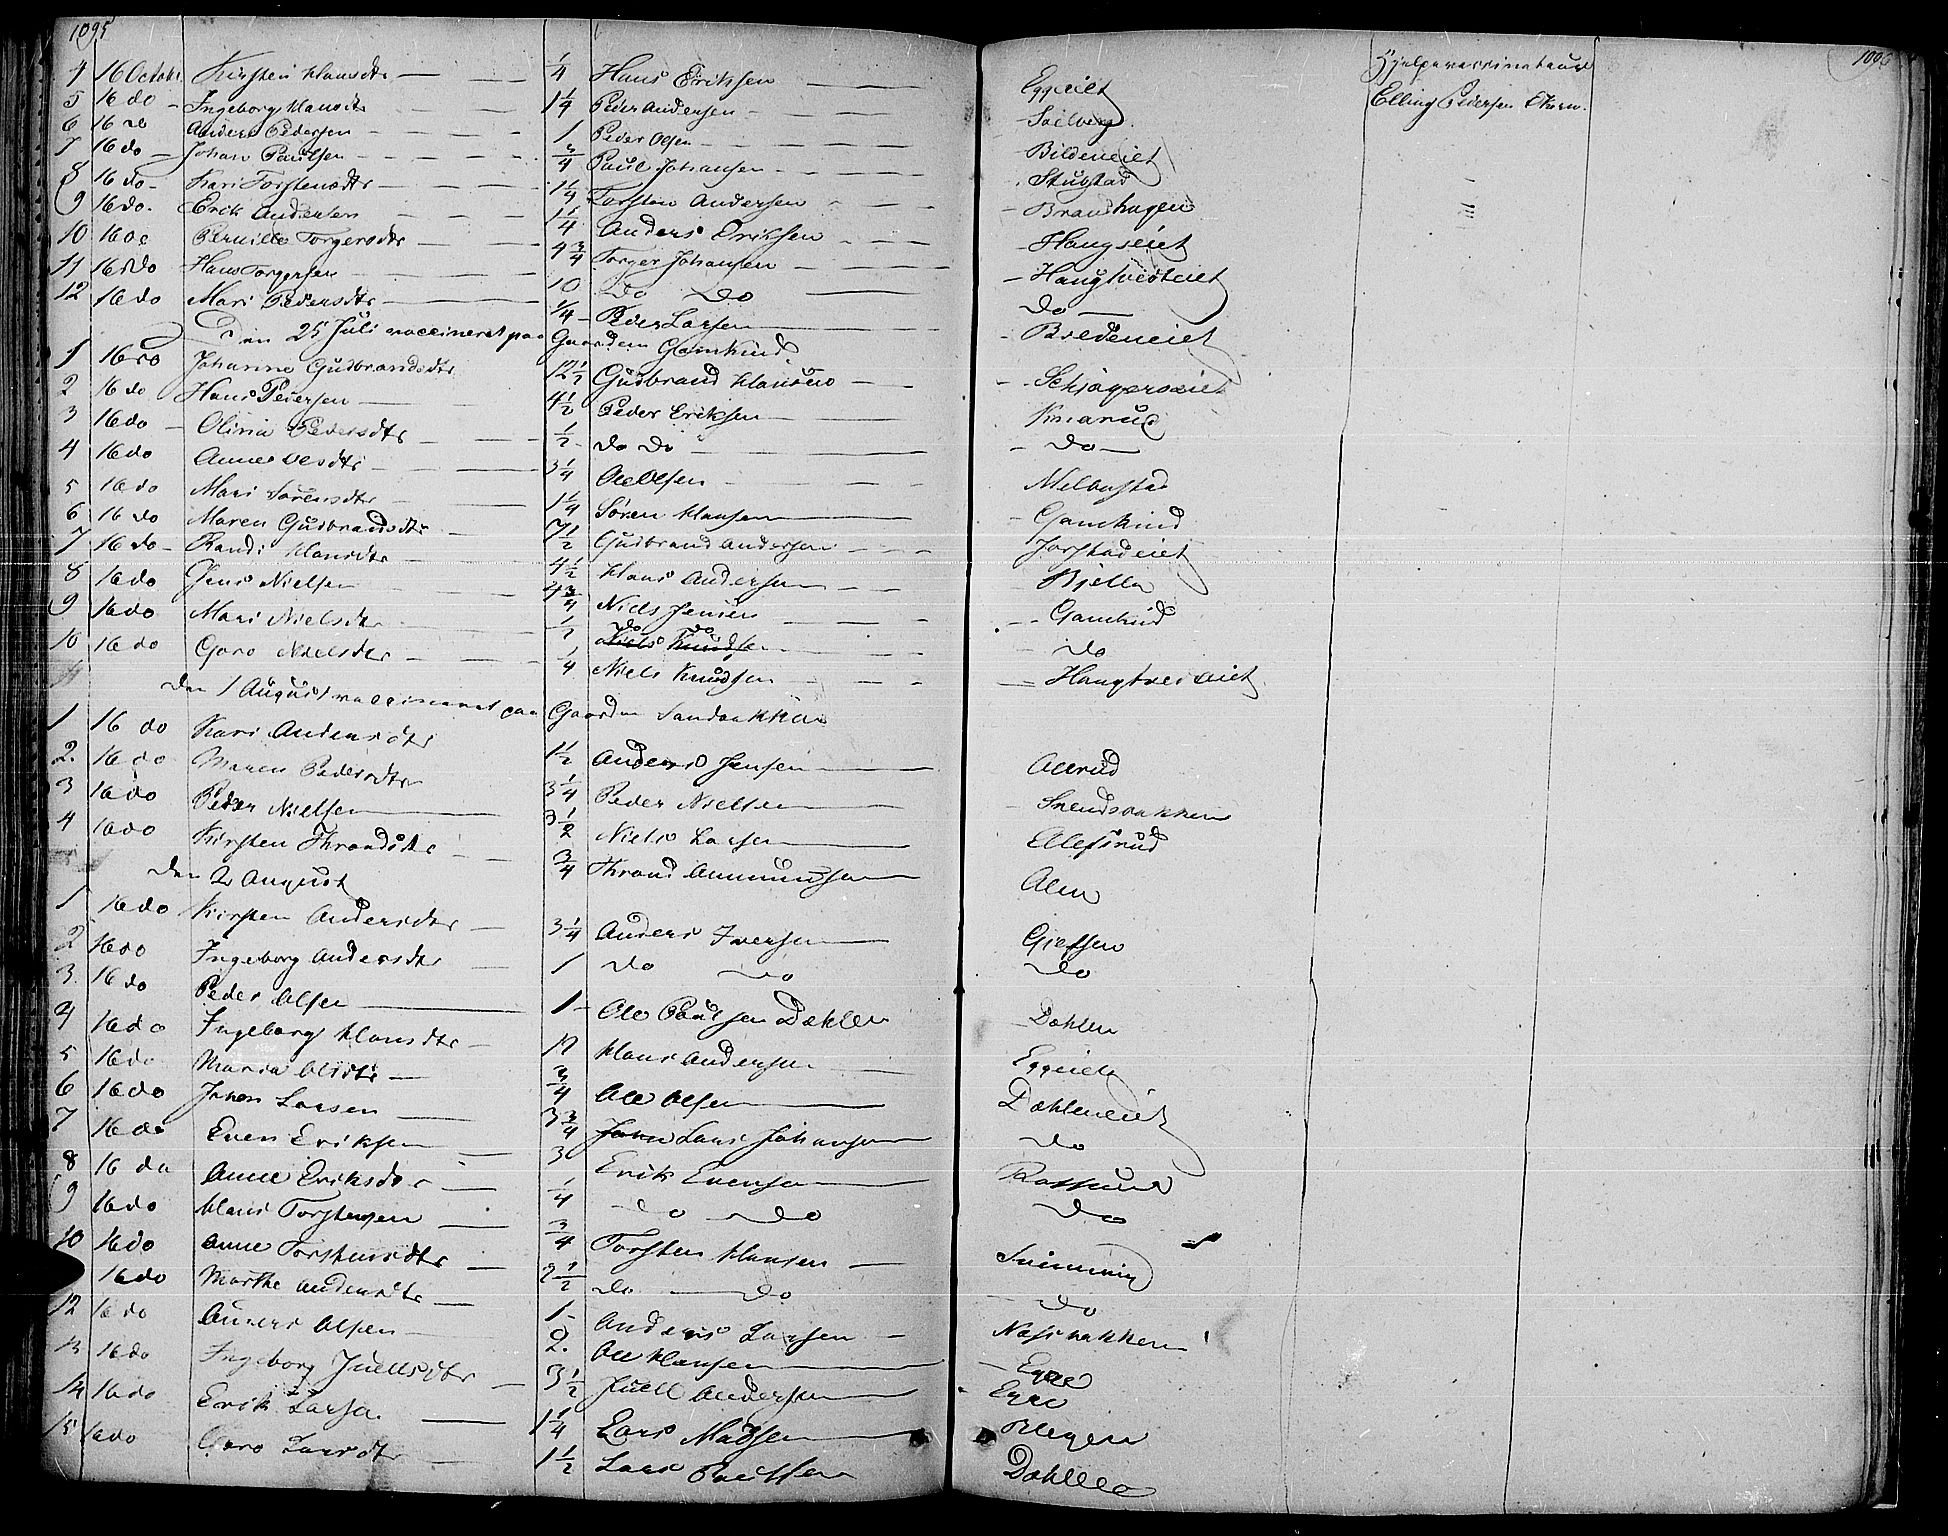 1095
4 16 Octobr Kirsten Hansdtr 1/4 Hans Eriksen Eggeiet Hjelpevaccinateur
5 16 do Ingeborg Hansdtr 1 1/4 Peder Andersen Elling Pedersen
6 16 do Anders Pedersen 1 Peder Olsen Bildeneiet
7 16 do Johan Paulsen 3/4 Paul Johansen Stubstad
8 16 do Kari Torstensdtr 1 1/4 Torsten Andersen Brandhagen
9 16 do Erik Andersen 1 1/4 Anders Eriksen Haugseiet
10 16 do Pernille Torgersdtr 4 3/4 Torger Johansen Haugtvedteiet
11 16 do Hans Torgersen 10 Do Do Do
12 16 do Mari Pedersdtr 1/4 Peder Larsen Bildeneiet
Den 25 Juli vaccineret paa Gaarden Gamkind
1 16 do Johanne Gudbrandsdtr 12 1/2 Gudbrand Hansen
2 16 do Hans Pedersen 4 1/2 Peder Eriksen Knarud
3 16 do Olivia Pedersdtr 1/2 do do Do
4 16 do Anne Olsdtr 3 1/4 Ole Olsen Melbustad
5 16 do Mari Sørensdtr 1 1/4 Søren Hansen Gamkind
6 16 do Maren Gudbrandsdtr 7 1/2 Gudbrand Andersen Jorstadeiet
7 16 do Randi Hansdtr 4 1/2 Hans Andersen Bjella
8 16 do Jens Nielsen 4 3/4 Niels Jensen Gamkind
9 16 do Mari Nielsdtr 1/2 do do Niels Knudsen do
10 16 do Goro Nielsdtr 1/4 Niels Knudsen Haugtvedteiet
Den 1 August vaccineret paa Gaarden
1 16 do Kari Andersdtr 1 1/2 Anders Jensen Allrud
2. 16 do Maren Pedersdtr 3 1/4 Peder Nielsen Svendsbakken
3 16 do Peder Nielsen 3 1/2 Niels Larsen Ellefsrud
4 16 do Kirsten Throndsdtr 3/4 Thrond Amundsen Alm
Den 2 August
1 16 do Kirsten Andersdtr 3 1/4 Anders Iversen Giefsen
2 16 do Ingeborg Andersdtr 1 Do Do Do
3. 16 do Peder Olsen 1 Ole Paulsen Dæhlen Dæhlen
4 16 do Ingeborg Hansdtr 17 Hans Andersen Eggeiet
5 16 do Maria Olsdtr 3/4 Ole Olsen Dæhleneiet
6 16 do Johan Larsen 3 3/4 John Lars Johansen Do
7 16 do Even Eriksen 3 Erik Evensen
8 16 do Anne Eriksdtr 1/4 do do Do
9 16 do Hans Torstensen 3/4 Torsten Hansen
10 16 do Anne Torstensdtr 2 1/2 Do Do Do
16 do Marthe Andersdtr 1 Anders Larsen Næssbakken
12 16 do Anders Olsen 2. Ole Hansen Egge
13 16 do Ingeborg Juellsdtr 3 1/2 Juell Andersen Egge
14 16 do Erik Larsen 1 1/4 Lars Madsen Blegen
15 16 do Goro Larsdtr 1 1/2 Lars Paulsen Dæhlen